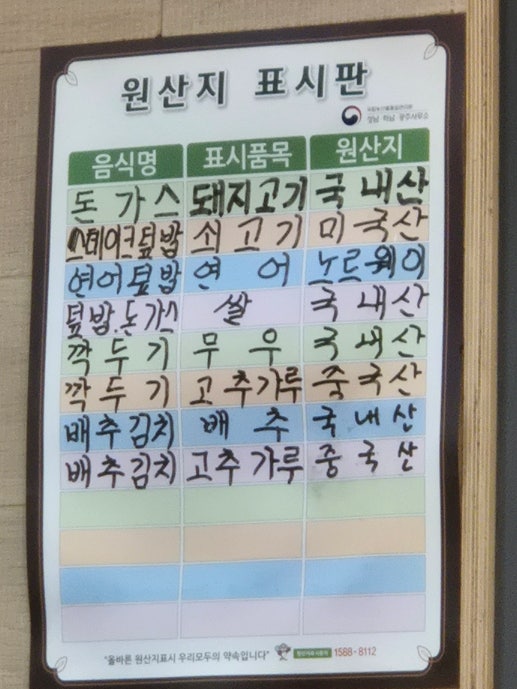 원산지 표시판
국립농산물품질관리원
성남 하남 광주사무소
음식명 표시품목 원산지
돈가스 돼지고기 국내산
스테이크덮밥 쇠고기 미국산
연어덮밥 연어 노르웨이
덮밥.돈가스 쌀 국내산
깍두기 무우 국내산
깍두기 고추가루 중국산
배추김치 배추 국내산
배추김치 고추가루 중국산
"올바른 원산지표시 우리모두의 약속입니다" 1588-8112